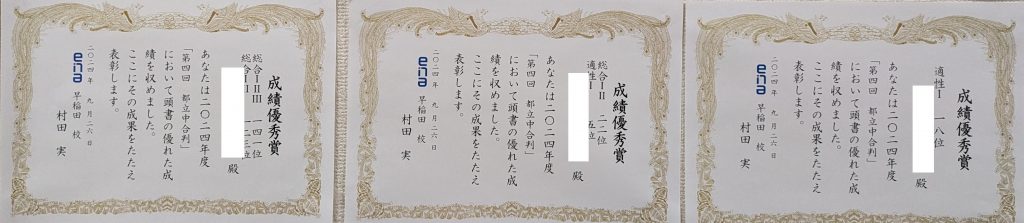 成績優秀賞
総合ⅠⅡⅢ 一四一位
総合ⅠⅡ 一二三位
殿
あなたは二〇二四年度
「第四回 都立中合判」
において頭書の優れた成
績を収めました。
ここにその成果をたたえ
表彰します。
二〇二四年 九月二六日
ena 早稲田 校
村田 実
成績優秀賞
総合ⅠⅡ 二二位
適性Ⅰ 五位
殿
あなたは二〇二四年度
「第四回 都立中合判」
において頭書の優れた成
績を収めました。
ここにその成果をたたえ
表彰します。
二〇二四年 九月二六日
ena 早稲田 校
村田 実
成績優秀賞
適性Ⅰ 一八位
殿
あなたは二〇二四年度
「第四回 都立中合判」
において頭書の優れた成
績を収めました。
ここにその成果をたたえ
表彰します。
二〇二四年 九月二六日
ena 早稲田 校
村田 実